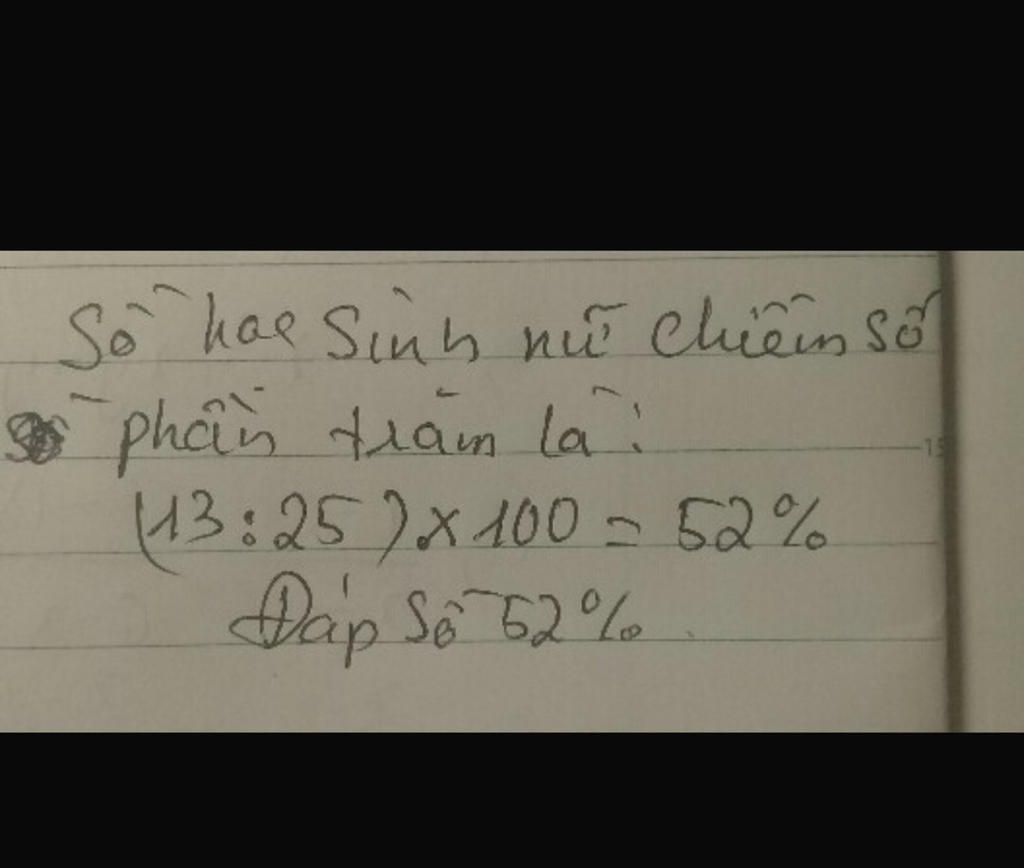 Số học sinh nữ chiếm số
phần trăm là:
(13:25) x 100 = 52%
Đáp số 52%